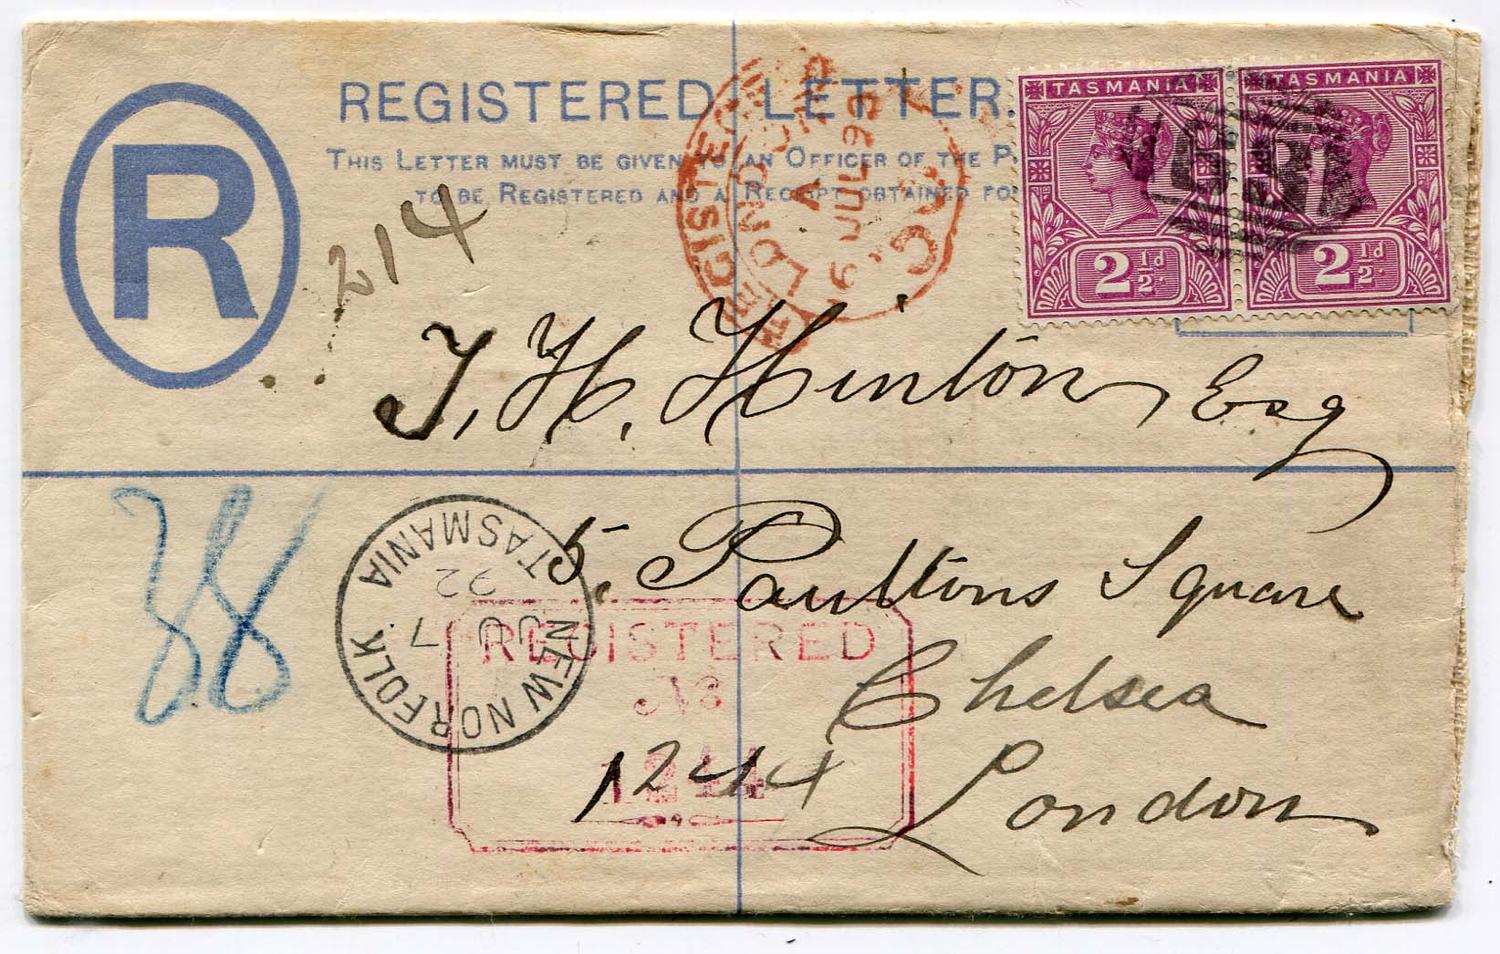 REGISTERED LETTER.
THIS LETTER MUST BE GIVEN TO AN OFFICER OF THE P
TO BE REGISTERED AND A RECEIPT OBTAINED FO
R
TASMANIA
2½d
TASMANIA
2½d
214
REGISTERED
LONDON
A
JUL 92
T. H. Hinton, Esq
5, Paultons Square
Chelsea
London
88
NEW NORFOLK
TASMANIA
7
JU
92
REGISTERED
No
1244
1244